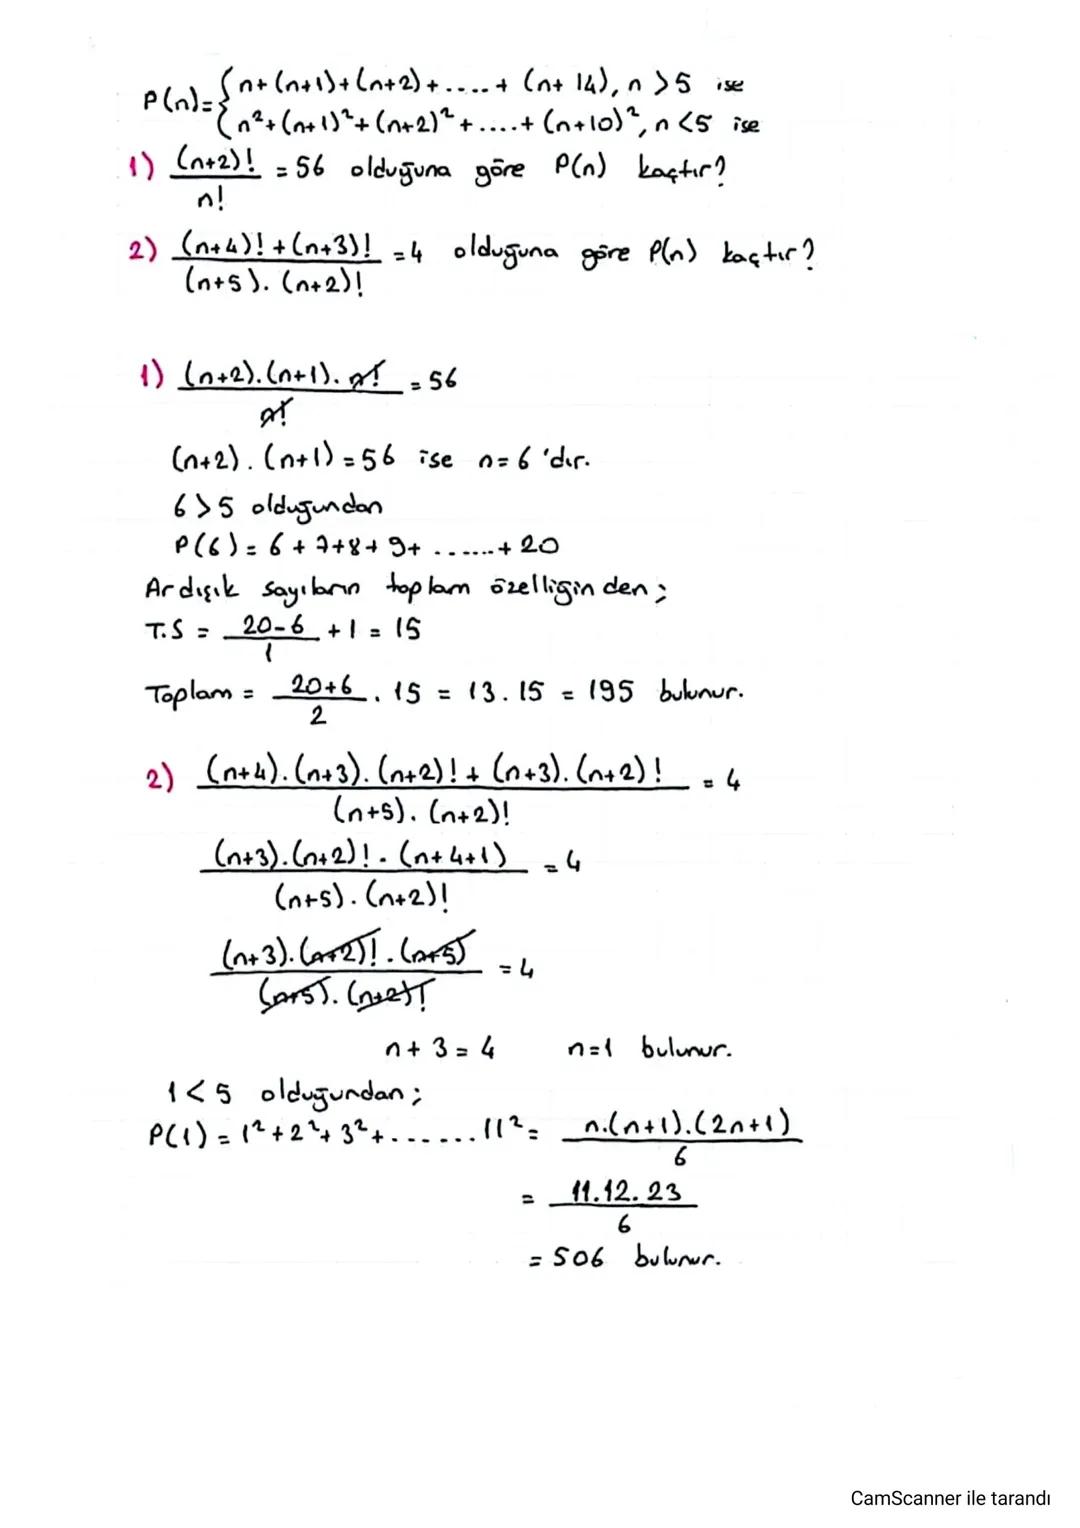 P(n)={n+(n+1)+(n+2)+....+(n+14), n>5 ise
n²+(n+1)²+(n+2)²+....+(n+10)², n<5 ise
1) (n+2)!/n! = 56 olduğuna göre P(n) kaçtır?
2) (n+4)!+(n+3)!/(n+5).(n+2)! = 4 olduğuna göre P(n) kaçtır?
1) (n+2).(n+1).n!/n! = 56
(n+2).(n+1)=56 ise n=6'dır.
6>5 olduğundan
P(6)=6+7+8+9+.......+20
Ardışık sayıların toplam özelliğinden;
T.S = 20-6/1 + 1 = 15
Toplam = 20+6/2 . 15 = 13.15 = 195 bulunur.
2) (n+4).(n+3).(n+2)!+(n+3).(n+2)!/(n+5).(n+2)! = 4
(n+3).(n+2)!.(n+4+1)/(n+5).(n+2)! = 4
(n+3).(n+2)!.(n+5)/(n+5).(n+2)! = 4
n+3=4 n=1 bulunur.
1<5 olduğundan;
P(1)=1²+2²+3²+.......11²= n.(n+1).(2n+1)/6
= 11.12.23/6
= 506 bulunur.
CamScanner ile tarandı